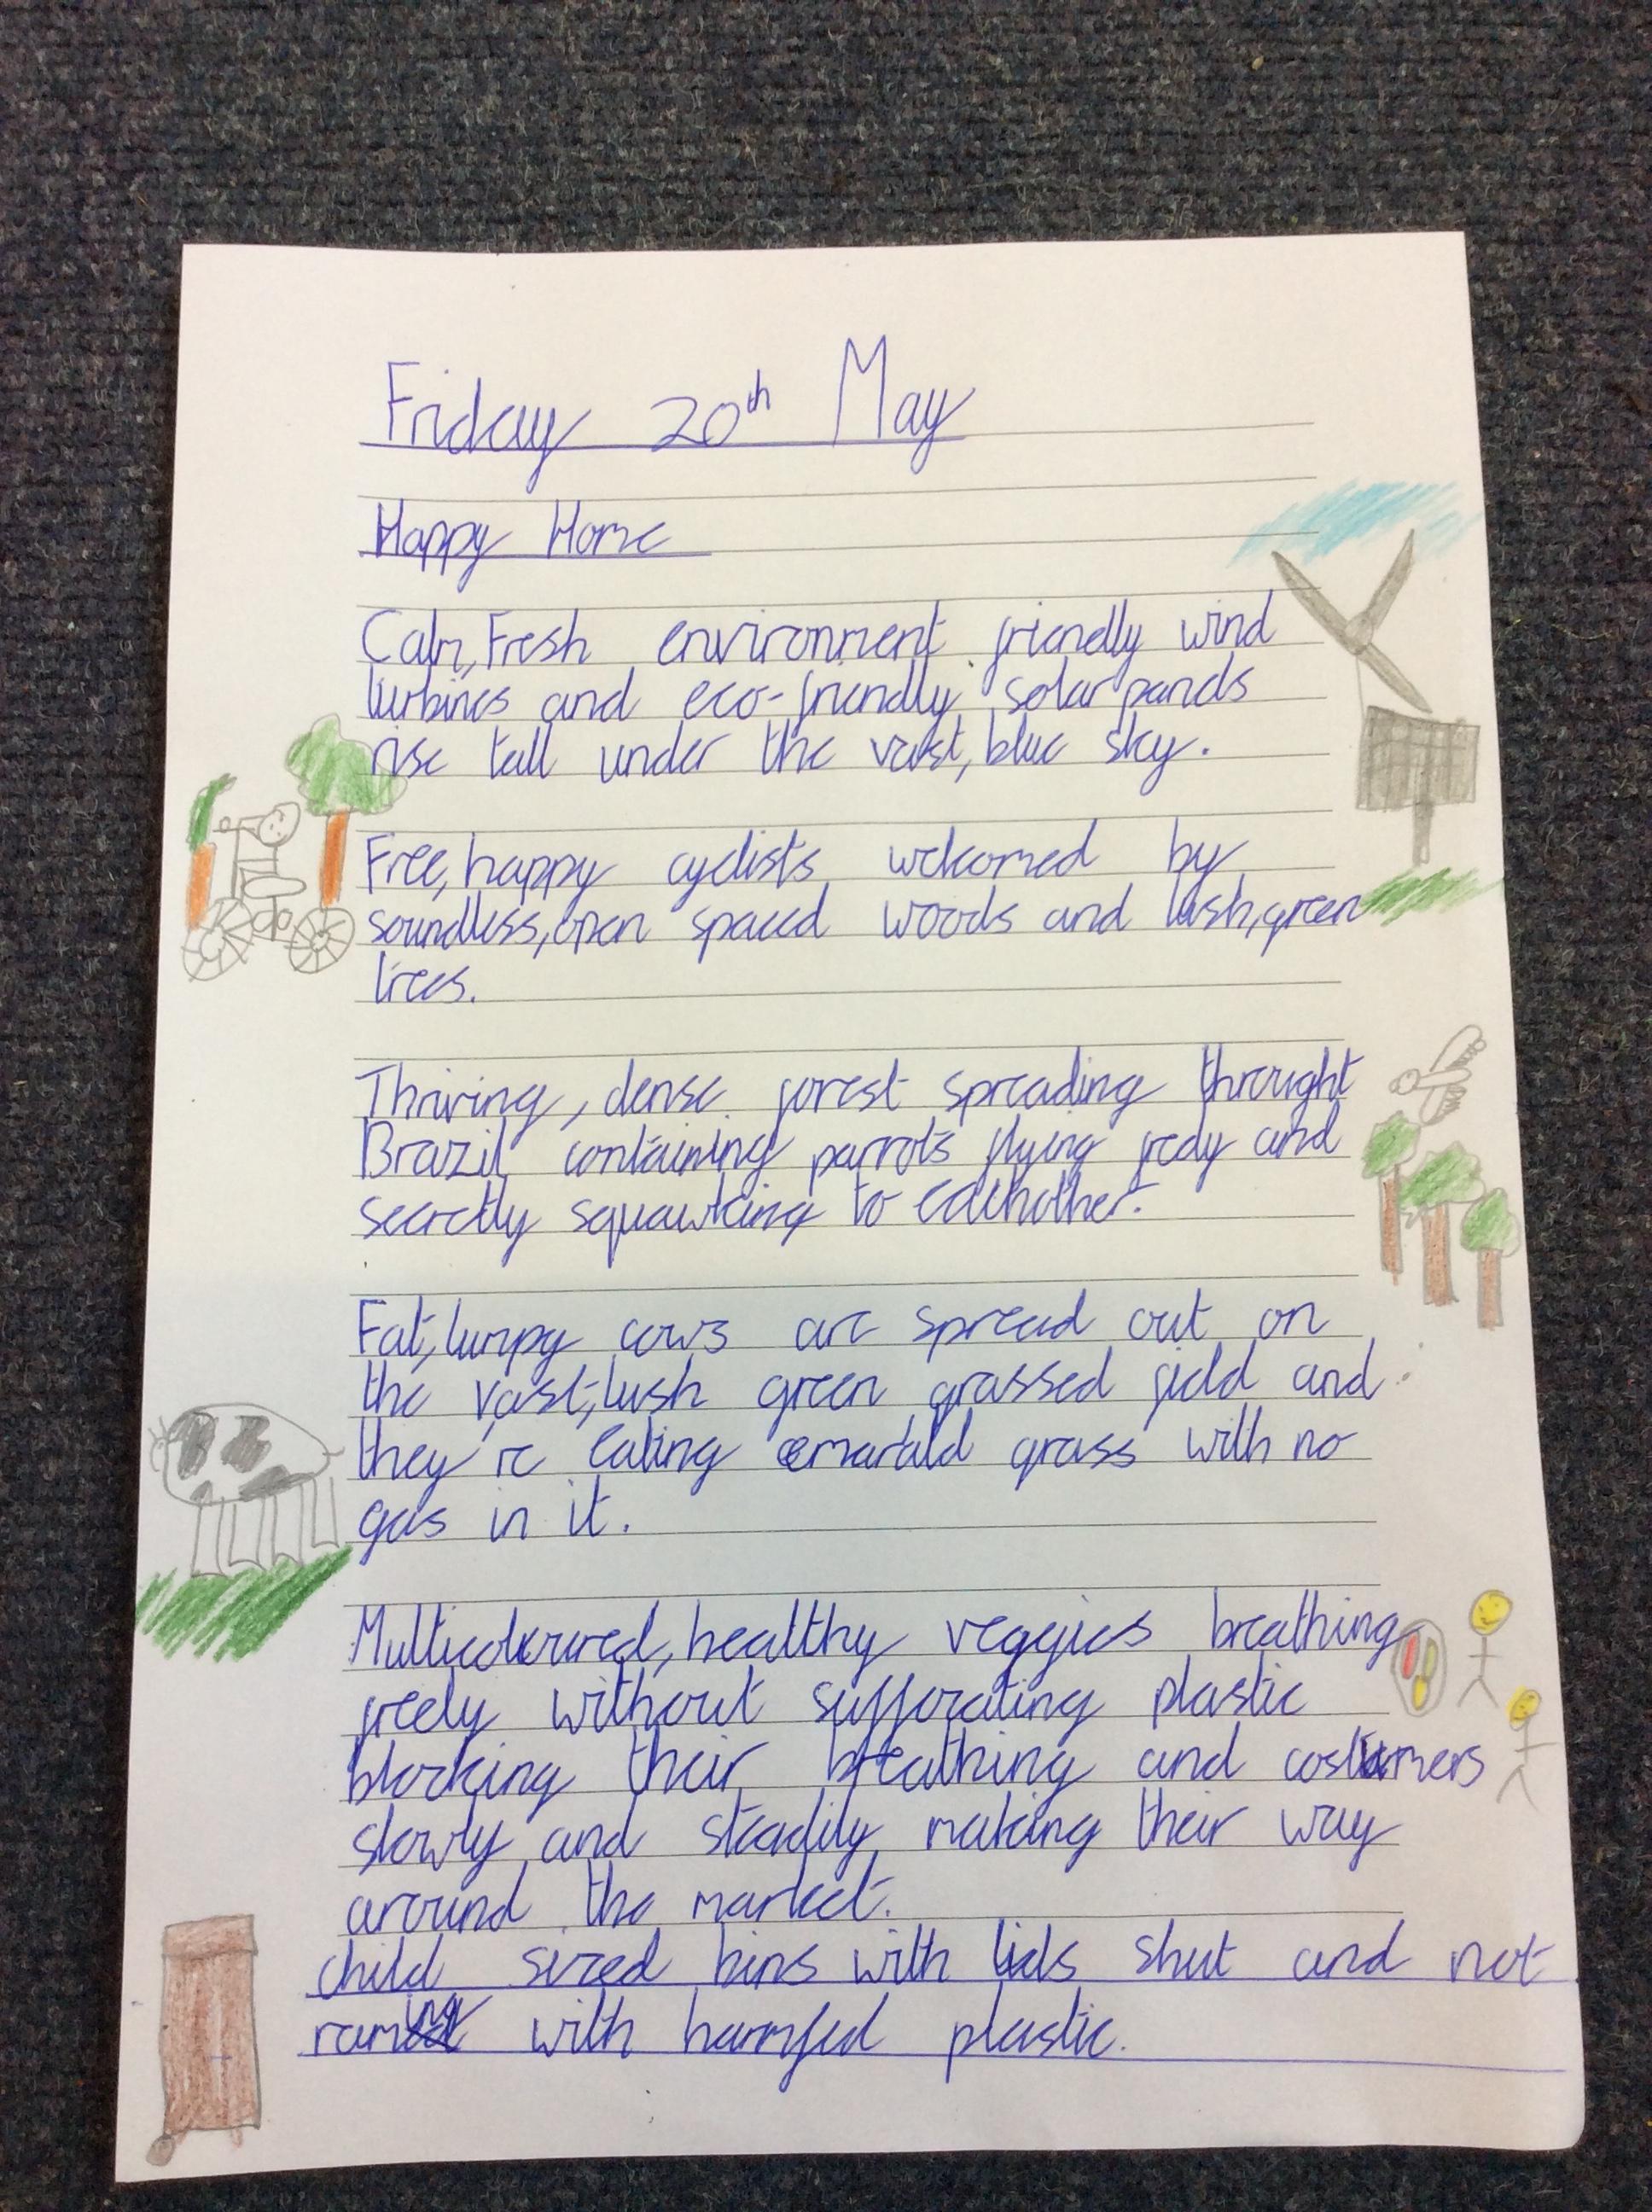 Friday 20th May
Happy Home
Calm, Fresh environment friendly wind
turbines and eco-friendly solar panels
rise tall under the vast, blue sky.
Free, happy cyclists welcomed by
soundless, open spaced woods and lush, green
trees.
Thriving, dense forest spreading throught
Brazil containing parrots flying freely and
secretly squawking to eachother.
Fat, lumpy cows are spread out on
the vast, lush green grassed field and
they're eating emarald grass with no
gas in it.
Multicoloured, healthy veggies breathing
freely without sufforcating plastic
blocking their breathing and costumers
slowly and steadily making their way
around the market.
child sized bins with lids shut and not
raming with harmful plastic.